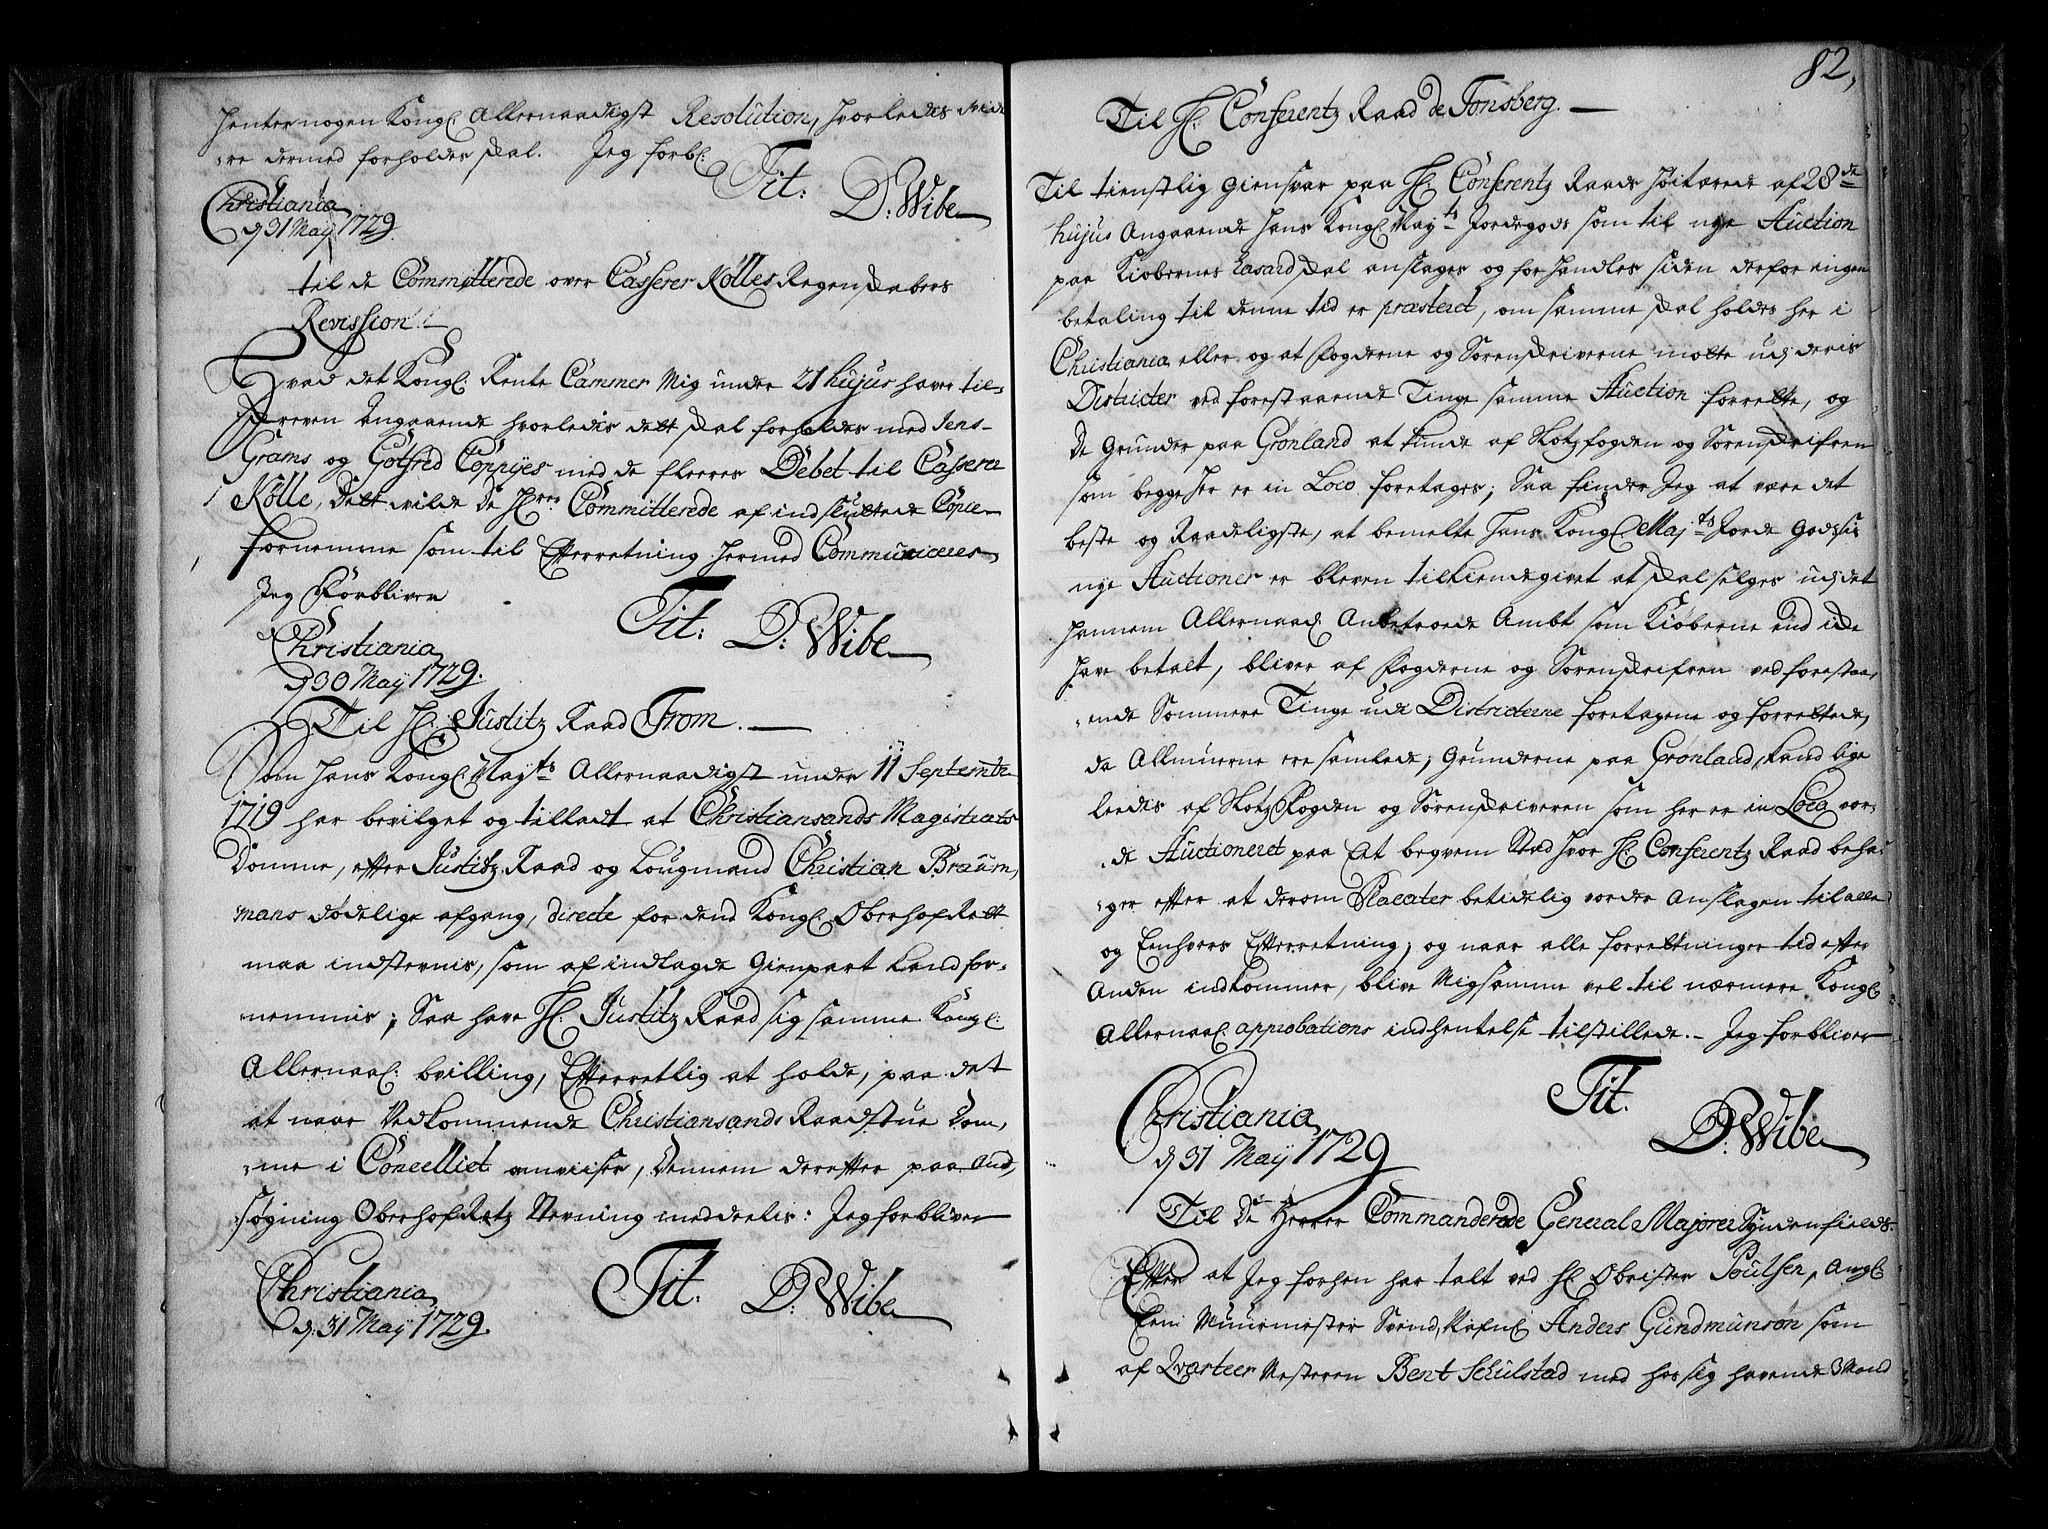 henter nogen Kongl Allernaadigst Resolution, hvorledes vide
:re dermed forholdes skal. Jeg forbl:
Tit: D: Wibe
Christiania
d 31 May 1729.
til de Committerede over Casserer Nölles Regenskabers
Revission
Hvad det Kongl. Rente Cammer Mig under 21 hujus haver til-
skreven Angaaende hvorledis dett skal forholdes med Jens
Grams og Gotfred Cöppÿes med de fleeres Debet til Casserer
Nölle, Dett wilde De Hrer Committerede af indsluttede Copie
fornemme som til Efterretning hermed Communiceres
Jeg Förbliver
Tit: D: Wibe
Christiania
d 30 May 1729.
Til Hr. Justitz Raad From.
Som Hans Kongl: Mayts Allernaadigst under 11 Septembr
1719 har bevilget og tilladt at Christiansands Magistrats
Domme, efter Justitz Raad og Laugmand Christian Braun,
mans dödelige afgang, directe for dend Kongl. OberhofRett
maa indstevnis, som af indlagde Gienpart kand for-
nemmis; Saa have Hr. Justitz Raad sig samme Kongl:
Allernaad: bevilling, Efterretlig at holde, paa det
at naar Vedkommende Christiansands Raadstue Dom,
:me i Concellict anviiser, Dennem derefter paa And,
søgning OberhofRetz Stevning meddeelis: Jeg forbliver
Tit: D: Wibe
Christiania
d: 31 May 1729.
82,
Til Hr. Conferentz Raad de Tonsberg.
Til tienstlig Giensvar paa Hr. Conferentz Raads Høitærede af 28de
hujus Angaaende Hans Kongl Mayts Jordegods som til nye Auction
paa Kiöbernes hasard skal anslages og forhandles siden derfor ingen
betaling til denne tid er præstert, om samme skal holdes her i
Christiania eller og at Fogderne og Sorenskriverne motte udj deris
Districter ved forestaaende Tinge samme Auction forrette, og
De Grunder paa Grönland at kunde af Slotzfogden og Sorenskrifren
som begge her er in Loco foretages; Saa finder Jeg at være det
beste og Raadeligste, at bemelte Hans Kongl Majts Jorde Godz
nye Auctioner er bleven tilkiendegivet at skal selges udj det
Hannem Allernaad: Anbetroede Ambt som Kiöberne end icke
have betalt, bliver af Fogderne og Sorenskrifren ved forestaa,
:ende Sommere Tinge udi Districterne foretagene og forrettede,
da Allmuerne ere samlede; Grunderne paa Grönland, kand lige
leedis af SlotzFogden og Sorenskriveren som her er in Loco vor:
:de Auctioneret paa Eet beqvem Sted hvor Hr. Conferentz Raad beha:
:ger efter at derom Placater betidelig vorder Anslagen til alle
og Eenhvers Efterretning; og naar alle forrettninger tid efter
Anden indkommer, blive Mig samme vel til nærmere Kongl:
Allernaad. approbations indhentelse tilstillede. Jeg forbliver
Tit. D: Wibe
Christiania
d 31 May 1729
Til De Herrer Commanderede General Majorer Syndenfields.
Efter at Jeg forhen har talt ved Hr Obrister Poulsen, Angl
Een Muurmester Svend, Nafnl Anders Gundmunsön som
af Qvarteer Mesteren Bent Schulstad med hos sig havende 3 Mand